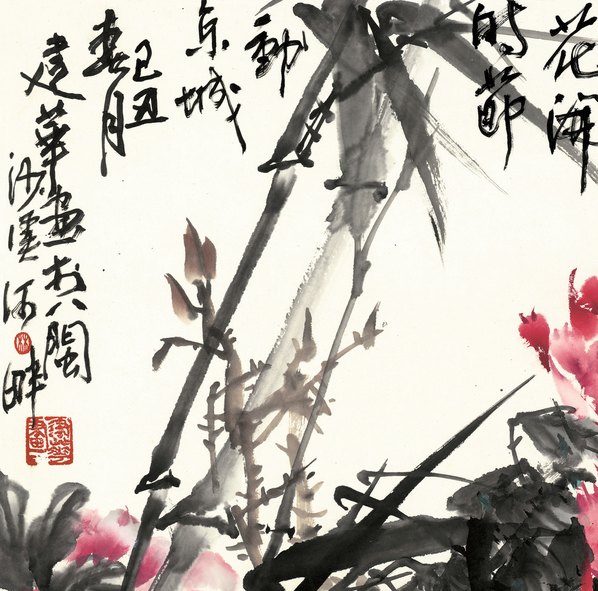 花開
時節
動
京城
己丑
春月
建華畫於八閩
沙溪河畔